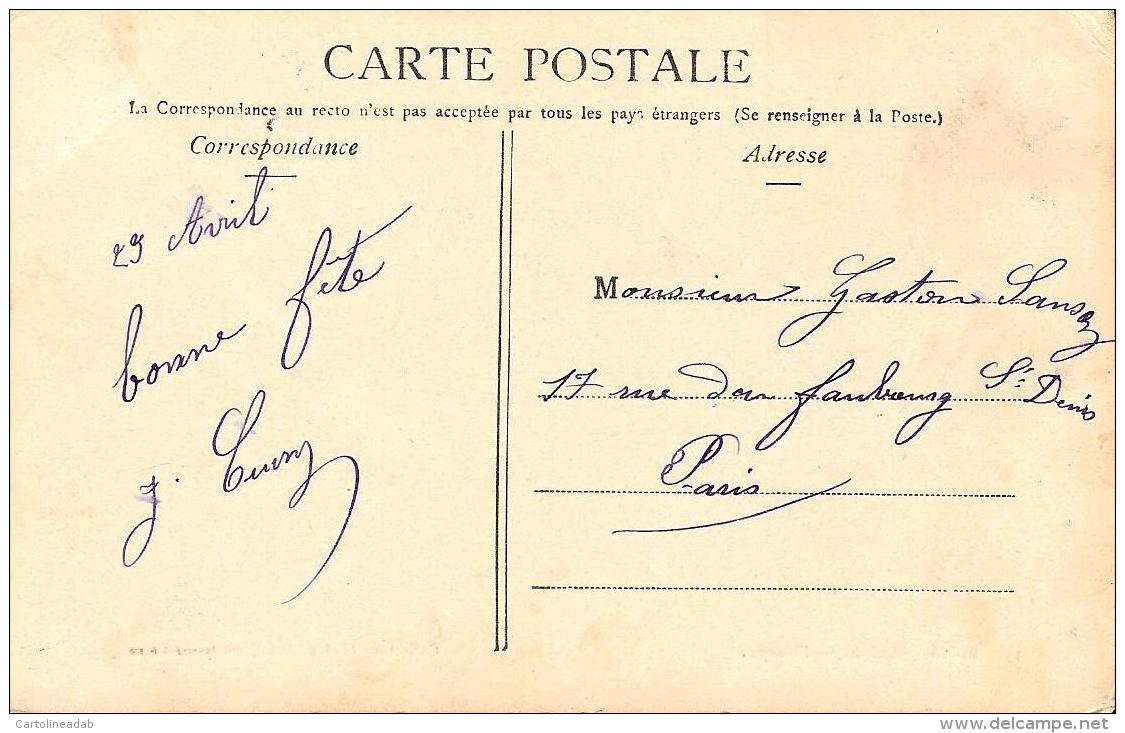 CARTE POSTALE
La Correspondance au recto n'est pas acceptée par tous les pays étrangers (Se renseigner à la Poste.)
Correspondance
29 Avril
bonne fête
J.
Adresse
Monsieur Gaston
17 rue du faubourg St Denis
Paris
Cartolineadab
www.delcampe.net